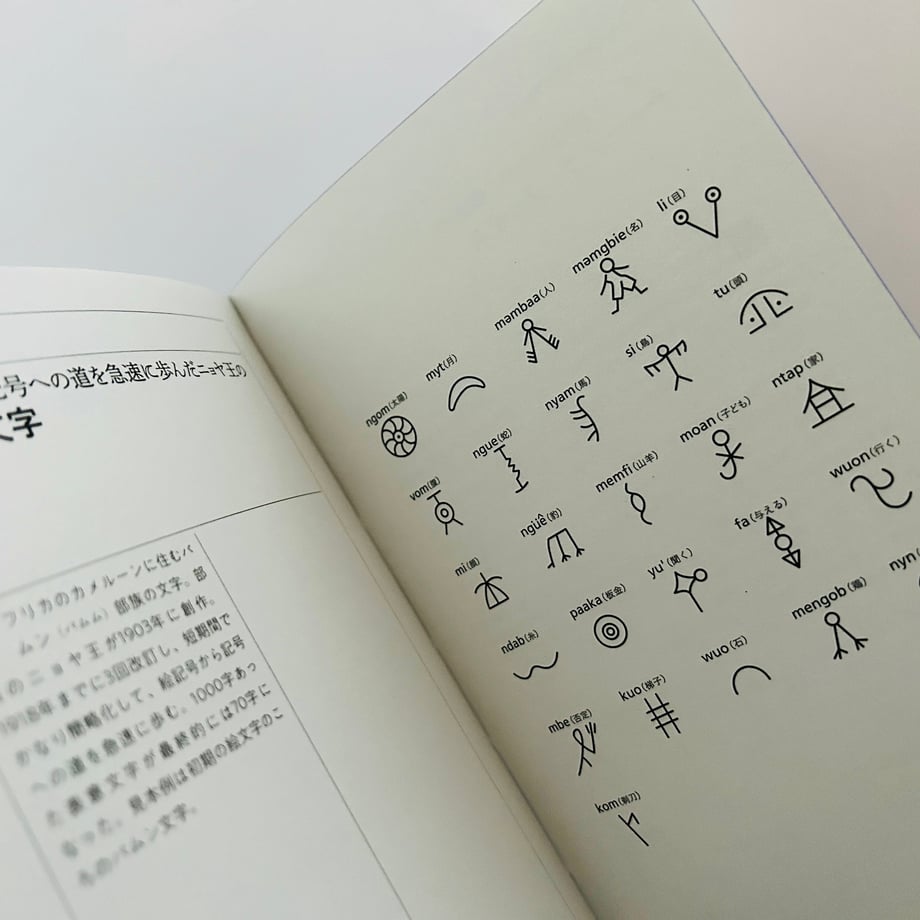 号への道を急速に歩んだニョヤ王の
文字
フリカのカメルーンに住むバ
ムン（バムム）部族の文字。部
のニョヤ王が1903年に創作。
1918年までに3回改訂し、短期間で
かなり簡略化して、絵記号から記号
への道を急速に歩む。1000字あっ
た表意文字が最終的には70字に
なった。見本例は初期の絵文字のこ
ろのバムン文字。
ngom(太陽) myt(月) məmbaa(人) məmgbie(名) li(目)
vom(腹) ngue(蛇) nyam(馬) si(鳥) tu(頭)
mi(顔) ngüê(豹) memfi(山羊) moan(子ども) ntap(家)
ndab(糸) paaka(板金) yu'(聞く) fa(与える) wuon(行く)
mbe(否定) kuo(梯子) wuo(石) mengob(鶏) nyn
kom(剃刀)